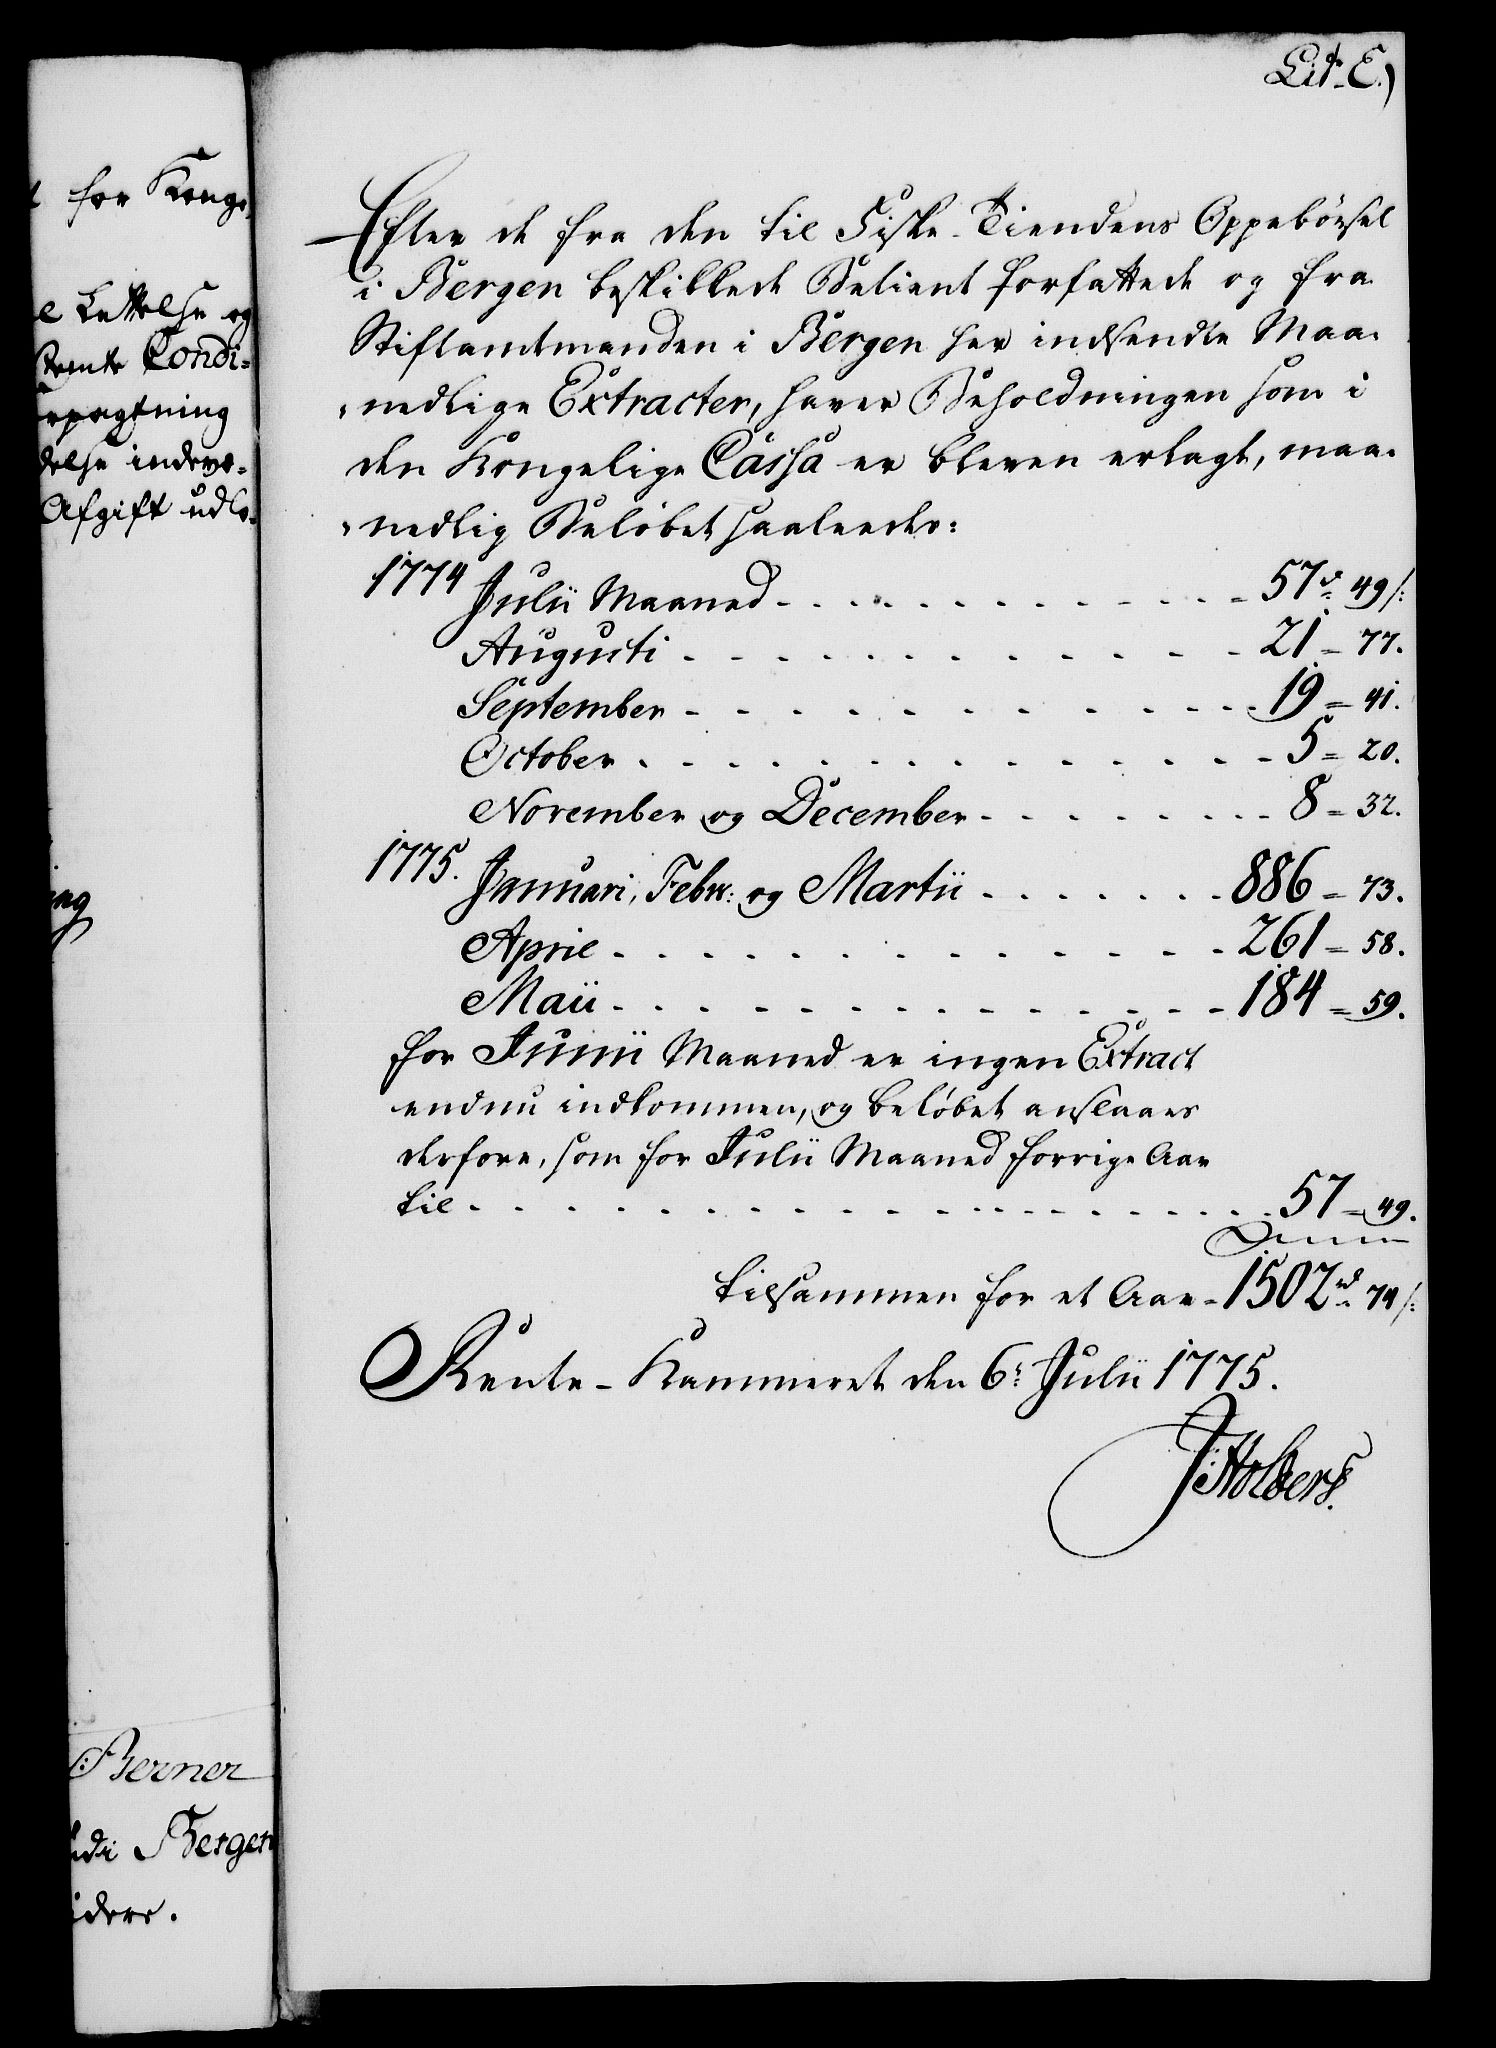 for Konge
Lettelse og
Condi-
rpagtning
delse indvor-
Afgift udlo-
ing
Berner
udi Bergen
idere.
Litr. E.)
Efter de fra den til Fiske-Tiendens Oppebörsel
i Bergen beskikkede Betient forfattede og fra
Stiftamtmanden i Bergen her indsendte Maa-
nedlige Extracter, haver Beholdningen som i
den Kongelige Cassa er bleven erlagt, maa-
nedlig Beløbet saaleedes:
1774 Julii Maaned - - - 57 rd 49 s:
Augusti - - - 21 = 77.
September - - - 19 = 41.
October - - - 5 = 20.
November og December - - - 8 = 32.
1775. Januari, Febr: og Martii - - - 886 = 73.
April - - - 261 = 58.
Maii - - - 184 = 59.
for Junii Maaned er ingen Extract
endnu indkommen, og beløbet anslaaes
derfore, som for Julii Maaned forrige Aar
til - - - 57 = 49.
tilsammen for et Aar - 1502 rd 74 s:
Rente-Kammeret den 6t Julii 1775.
J Holbers.